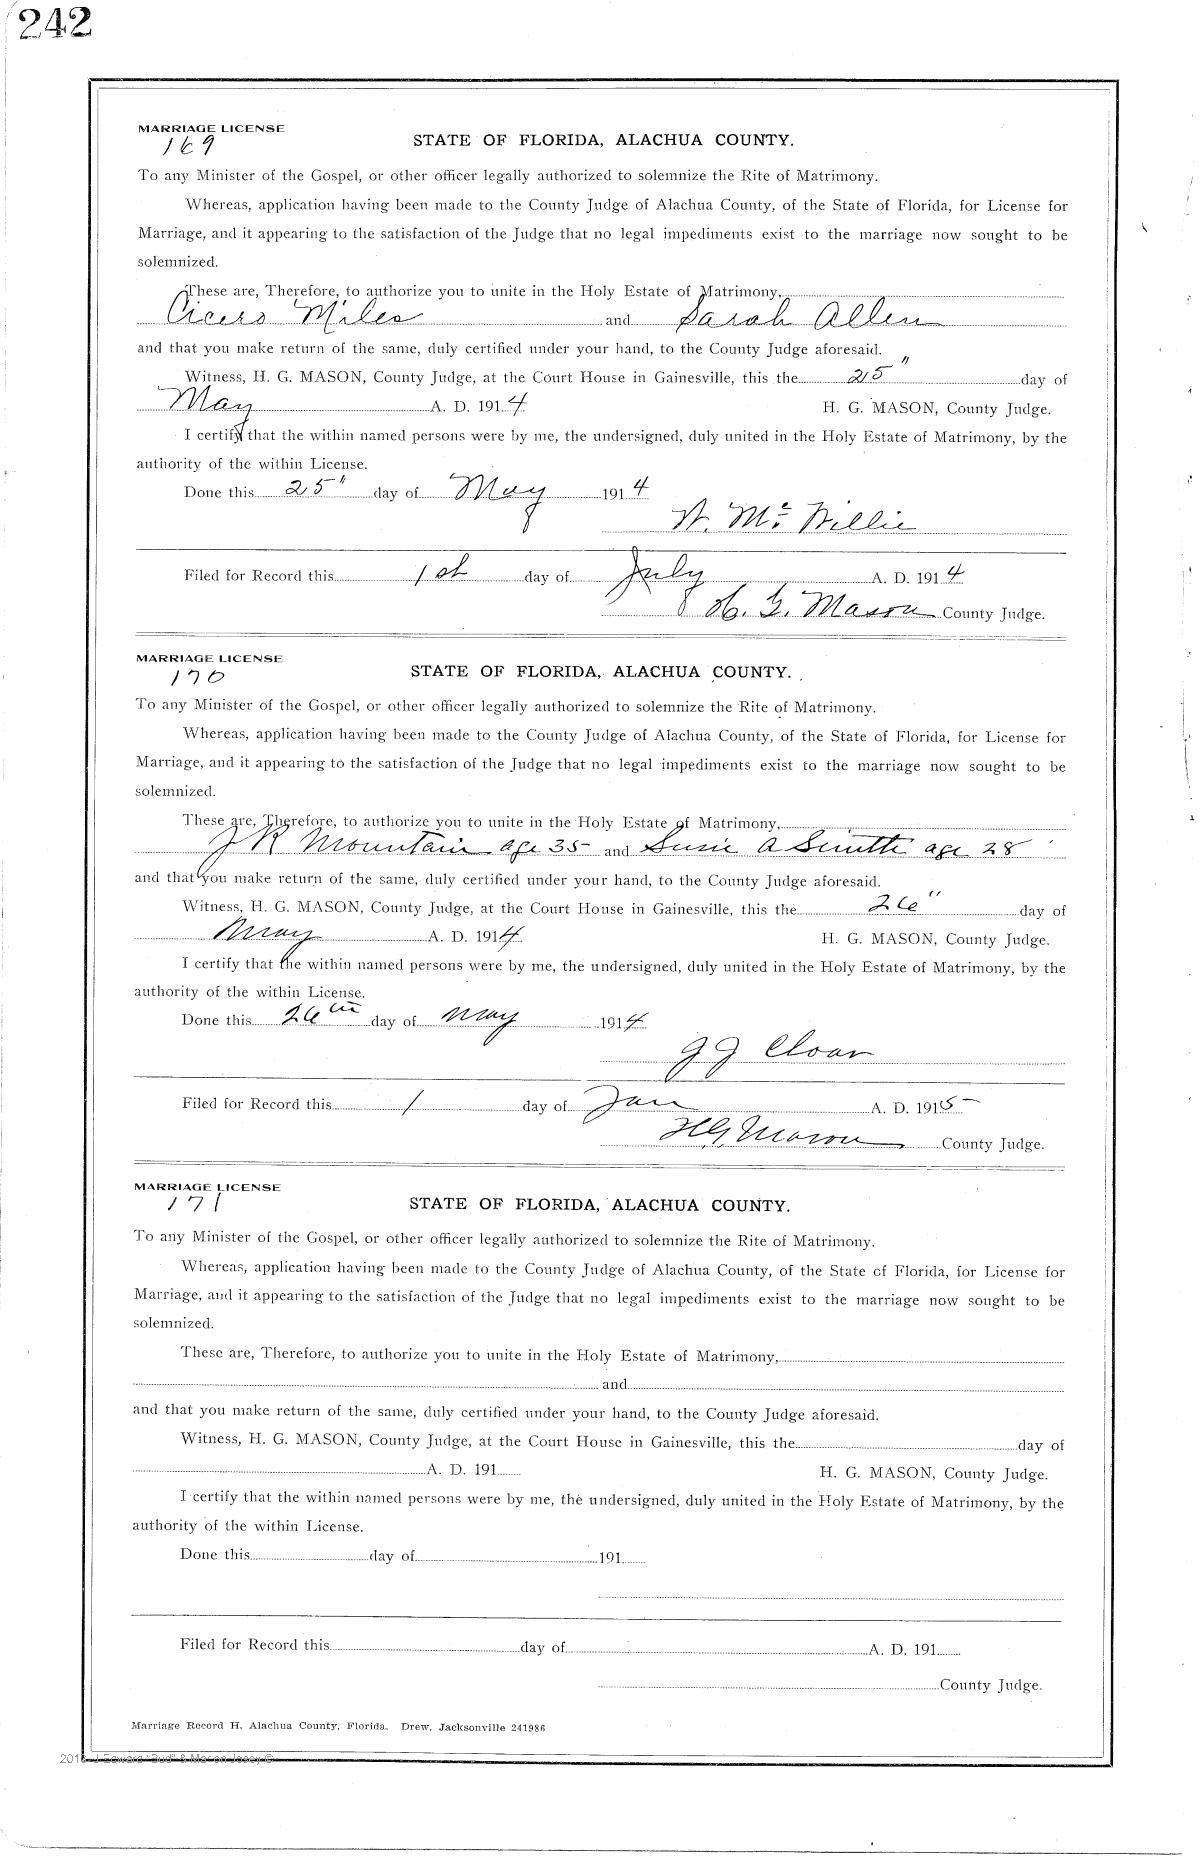 242
MARRIAGE LICENSE
169
STATE OF FLORIDA, ALACHUA COUNTY.
To any Minister of the Gospel, or other officer legally authorized to solemnize the Rite of Matrimony.
Whereas, application having been made to the County Judge of Alachua County, of the State of Florida, for License for
Marriage, and it appearing to the satisfaction of the Judge that no legal impediments exist to the marriage now sought to be
solemnized.
These are, Therefore, to authorize you to unite in the Holy Estate of Matrimony,
Cicero Miles and Sarah Allen
and that you make return of the same, duly certified under your hand, to the County Judge aforesaid.
Witness, H. G. MASON, County Judge, at the Court House in Gainesville, this the 25" day of
May A. D. 1914 H. G. MASON, County Judge.
I certify that the within named persons were by me, the undersigned, duly united in the Holy Estate of Matrimony, by the
authority of the within License.
Done this 25" day of May 1914
W. Mc Willie
Filed for Record this 1st day of July A. D. 1914
H. G. Mason County Judge.
MARRIAGE LICENSE
170
STATE OF FLORIDA, ALACHUA COUNTY.
To any Minister of the Gospel, or other officer legally authorized to solemnize the Rite of Matrimony.
Whereas, application having been made to the County Judge of Alachua County, of the State of Florida, for License for
Marriage, and it appearing to the satisfaction of the Judge that no legal impediments exist to the marriage now sought to be
solemnized.
These are, Therefore, to authorize you to unite in the Holy Estate of Matrimony,
J R Mountain age 35 and Susie A Smith age 28
and that you make return of the same, duly certified under your hand, to the County Judge aforesaid.
Witness, H. G. MASON, County Judge, at the Court House in Gainesville, this the 26" day of
May A. D. 1914 H. G. MASON, County Judge.
I certify that the within named persons were by me, the undersigned, duly united in the Holy Estate of Matrimony, by the
authority of the within License.
Done this 26th day of May 1914
J J Cloar
Filed for Record this 1 day of Jan A. D. 1915
H. G. Mason County Judge.
MARRIAGE LICENSE
171
STATE OF FLORIDA, ALACHUA COUNTY.
To any Minister of the Gospel, or other officer legally authorized to solemnize the Rite of Matrimony.
Whereas, application having been made to the County Judge of Alachua County, of the State of Florida, for License for
Marriage, and it appearing to the satisfaction of the Judge that no legal impediments exist to the marriage now sought to be
solemnized.
These are, Therefore, to authorize you to unite in the Holy Estate of Matrimony,
and
and that you make return of the same, duly certified under your hand, to the County Judge aforesaid.
Witness, H. G. MASON, County Judge, at the Court House in Gainesville, this the day of
A. D. 191 H. G. MASON, County Judge.
I certify that the within named persons were by me, the undersigned, duly united in the Holy Estate of Matrimony, by the
authority of the within License.
Done this day of 191
Filed for Record this day of A. D. 191
County Judge.
Marriage Record H, Alachua County, Florida. Drew, Jacksonville 241986